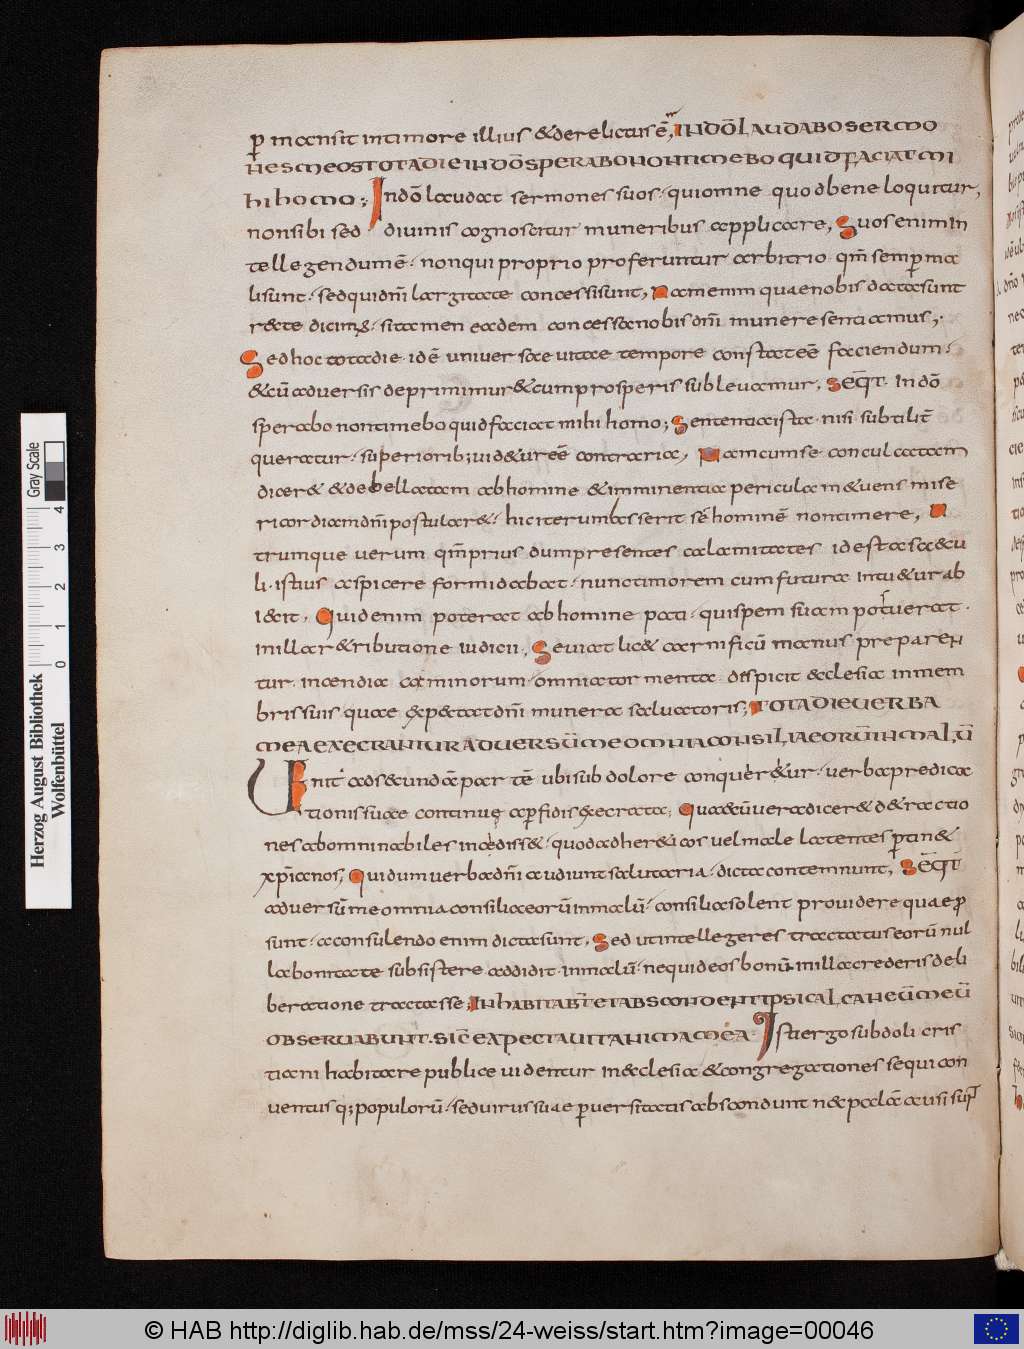 p̱ mansit in timore illius & derelictus ē, IN DŌ LAUDABO SERMO
NES MEOS TOTA DIE IN DŌ SPERABO NON TIMEBO QUID FACIAT MI
HI HOMO; In dō laudat sermones suos · qui omne quod bene loquitur,
non sibi sed divinis agnoscitur muneribus applicare, Suos enim in
tellegendum ē · non qui proprio proferuntur arbitrio qm̄ semp̱ ma
li sunt · sed qui dn̄i largitate concessi sunt, Nam enim quae nobis data sunt
r&ate dicim; · si tamen eadem concessa nobis dn̄i munere sentiamus,
Sed hoc tota die id ē universae vitae tempore constat eē faciendum ·
& cū adversis deprimimur & cum prosperis sublevamur, SEQT̄ · In dō
sperabo non timebo quid faciat mihi homo; Sententia ista · nisi subtilit̄
queratur · superiorib; vid&ur eē contraria, Nam cum se conculcatam
dicer& & debellatam ab homine & imminentia pericula m&uens mise
ricordiam dn̄i postular& · hic iterum asserit sē hominē non timere, U
trumque verum qm̄ prius dum presentes calamitates id est a sae&cu
li istius aspicere formidabat · nunc timorem cum futura intu&ur ab
i&cit, Quid enim poterat ab homine pati · quispem suam potuerat ·
in illa r&ributione iudicii, Seviat lic& carnificū manus preparen
tur incendia caminorum · omnia tormenta despicit &clesia in mem
bris suis quae exp&tat dn̄i munera salvatoris, TOTA DIE VERBA
MEA EXECRANTUR ADVERSŪ ME OMNIA CONSILIA EORŪ IN MALŪ
Venit ad s&undā partē ubi sub dolore conquer&ur · verba predica
tionis suae continuę a p̱fidis execrata, Quae cū vera dicer& d&ractio
nes abominabiles incędiss& · quod adher& eos vel male latentes p̱tin&
xp̄ianos, Qui dum verba dn̄i audiunt salutaria · dicta contemnunt, SEQT̄
adversū me omnia consilia eorū in malū · consilia solent providere quae p̱
sunt · a consulendo enim dicta sunt, Sed ut intellegeres tractatus eorū nul
la bonitate subsistere addidit in malū · ne quid eos bonū in illa crederis deli
beratione tractasse, INHABITABT̄ ET ABSCONDENT IPSI CALCANEŪ MEŪ
OBSERUABUNT · SIC̄ EXPECTAVIT ANIMA MEA · Isti ergo subdoli cris
tiani habitare publice videntur in &clesia & congregationes sequi con
ventus q; populorū · sed virus suae p̱versitatis abscondunt ne pala̅ a visi sup̱
Herzog August Bibliothek
Wolfenbüttel
0 1 2 3 4
Gray Scale
© HAB http://diglib.hab.de/mss/24-weiss/start.htm?image=00046